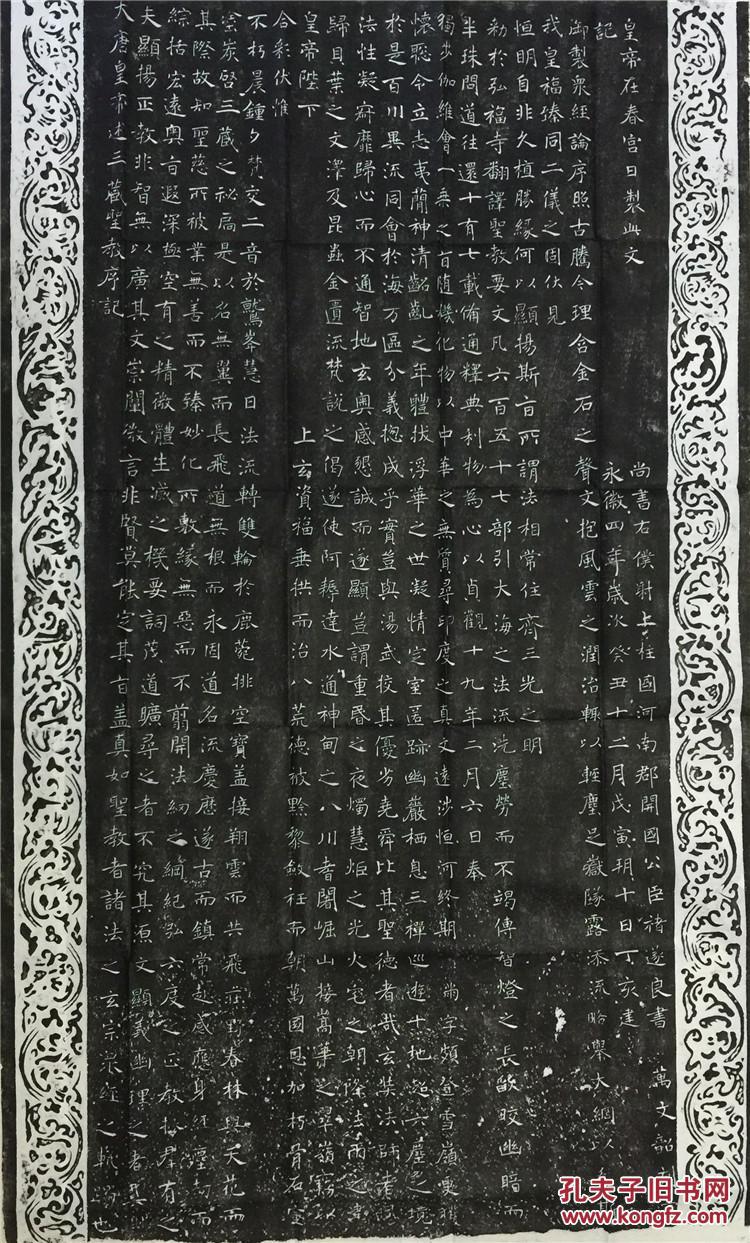 大唐皇帝述三藏聖教序記
夫顯揚正教非智無以廣其文崇闡微言非賢莫能定其旨盖真如聖教者諸法之玄宗衆經之軌躅也
綜括宏遠奧旨遐深極空有之精微體生滅之機要詞茂道曠尋之者不究其源文顯義幽理之者莫測
其際故知聖慈所被業無善而不臻妙化所敷緣無惡而不翦開法網之綱紀弘六度之正教拯群有之
塗炭啓三藏之祕扃是以名無翼而長飛道無根而永固道名流慶歷遂古而鎮常赴感應身經塵劫而
不朽晨鍾夕梵交二音於鷲峯慧日法流轉雙輪於鹿菀排空寶盖接翔雲而共飛莊野春林與天花而
合彩伏惟
皇帝陛下上玄資福垂拱而治八荒德被黔黎斂衽而朝萬國恩加朽骨石室
歸貝葉之文澤及昆蟲金匱流梵說之偈遂使阿耨達水通神甸之八川耆闍崛山接嵩華之翠嶺竊以
法性凝寂靡歸心而不通智地玄奧感懇誠而遂顯豈謂重昏之夜燭慧炬之光火宅之朝降法雨之澤
於是百川異流同會於海万區分義揔成乎實豈與湯武挍其優劣堯舜比其聖德者哉玄奘法師者夙
懷聰令立志夷簡神清齠齔之年體拔浮華之世凝情定室匿跡幽巖栖息三禪巡遊十地超六塵之境
獨步伽維會一乘之旨隨機化物以中華之無質尋印度之真文遠涉恒河終期滿字頻登雪嶺更獲
半珠問道往還十有七載俻通釋典利物為心以貞觀十九年二月六日奉
勑於弘福寺翻譯聖教要文凡六百五十七部引大海之法流洗塵勞而不竭傳智燈之長燄皎幽暗而
恒明自非久植勝緣何以顯揚斯旨所謂法相常住齊三光之明
我皇福臻同二儀之固伏見
御製衆經論序照古騰今理含金石之聲文抱風雲之潤治輒以輕塵足嶽墜露添流略舉大綱以為
記
皇帝在春宮日製此文
永徽四年歲次癸丑十二月戊寅朔十日丁亥建
尚書右僕射上柱國河南郡開國公臣褚遂良書
萬文韶刻
孔夫子旧书网
www.kongfz.com